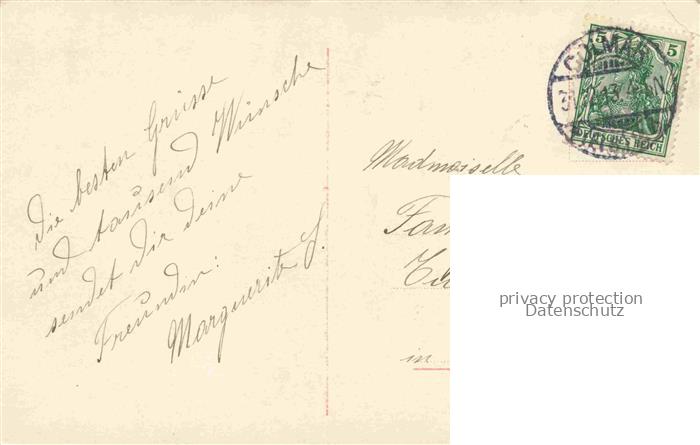 Die besten Grüsse
und tausend Wünsche
sendet dir deine
Freundin:
Marguerite S.
5 5
COLMAR
DEUTSCHES REICH
Madmoiselle
Fan
in
privacy protection
Datenschutz